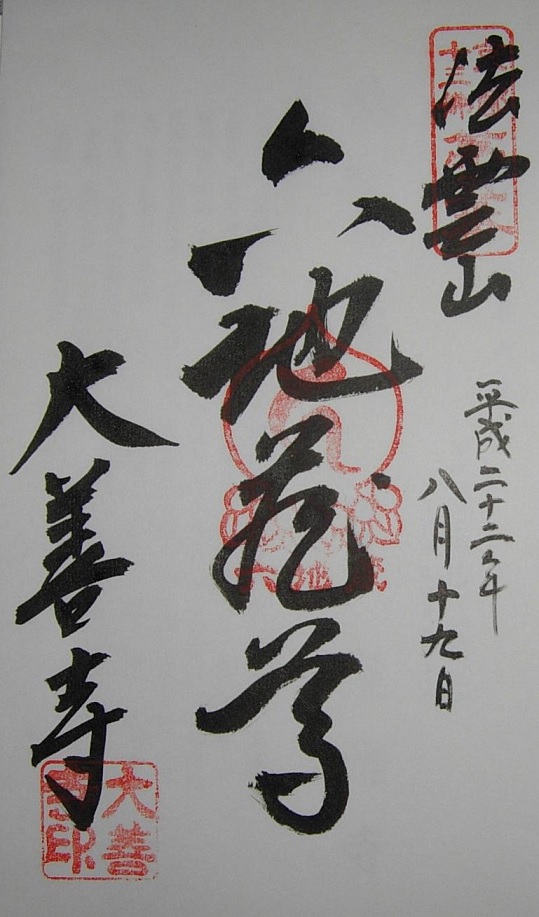 法雲山
平成二十二年
八月十九日
六地蔵尊
大善寺
六地蔵
大善寺印